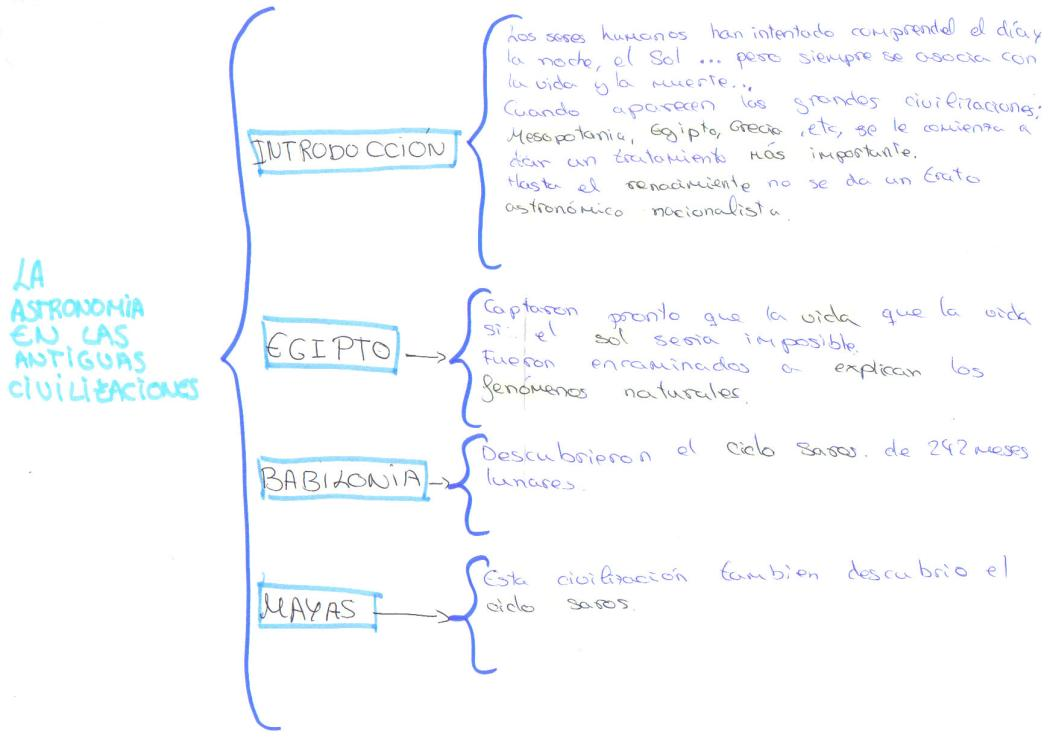 LA
ASTRONOMÍA
EN LAS
ANTIGUAS
CIVILIZACIONES
INTRODUCCIÓN
Los seres humanos han intentado comprendel el día y
la noche, el Sol ... pero siempre se asocia con
la vida y la muerte...
Cuando aparecen las grandes civilizaciones:
Mesopotania, Egipto, Grecia, etc, se le comienza a
dar un tratamiento más importante.
Hasta el renacimiente no se da un trato
astronómico nacionalista.
EGIPTO
Captaron pronto que la vida que la vida
si el sol seria imposible.
Fueron encaminados a explican los
fenómenos naturales.
BABILONIA
Descubrieron el ciclo saros. de 242 meses
lunares.
MAYAS
Esta civilización tambien descubrio el
ciclo saros.